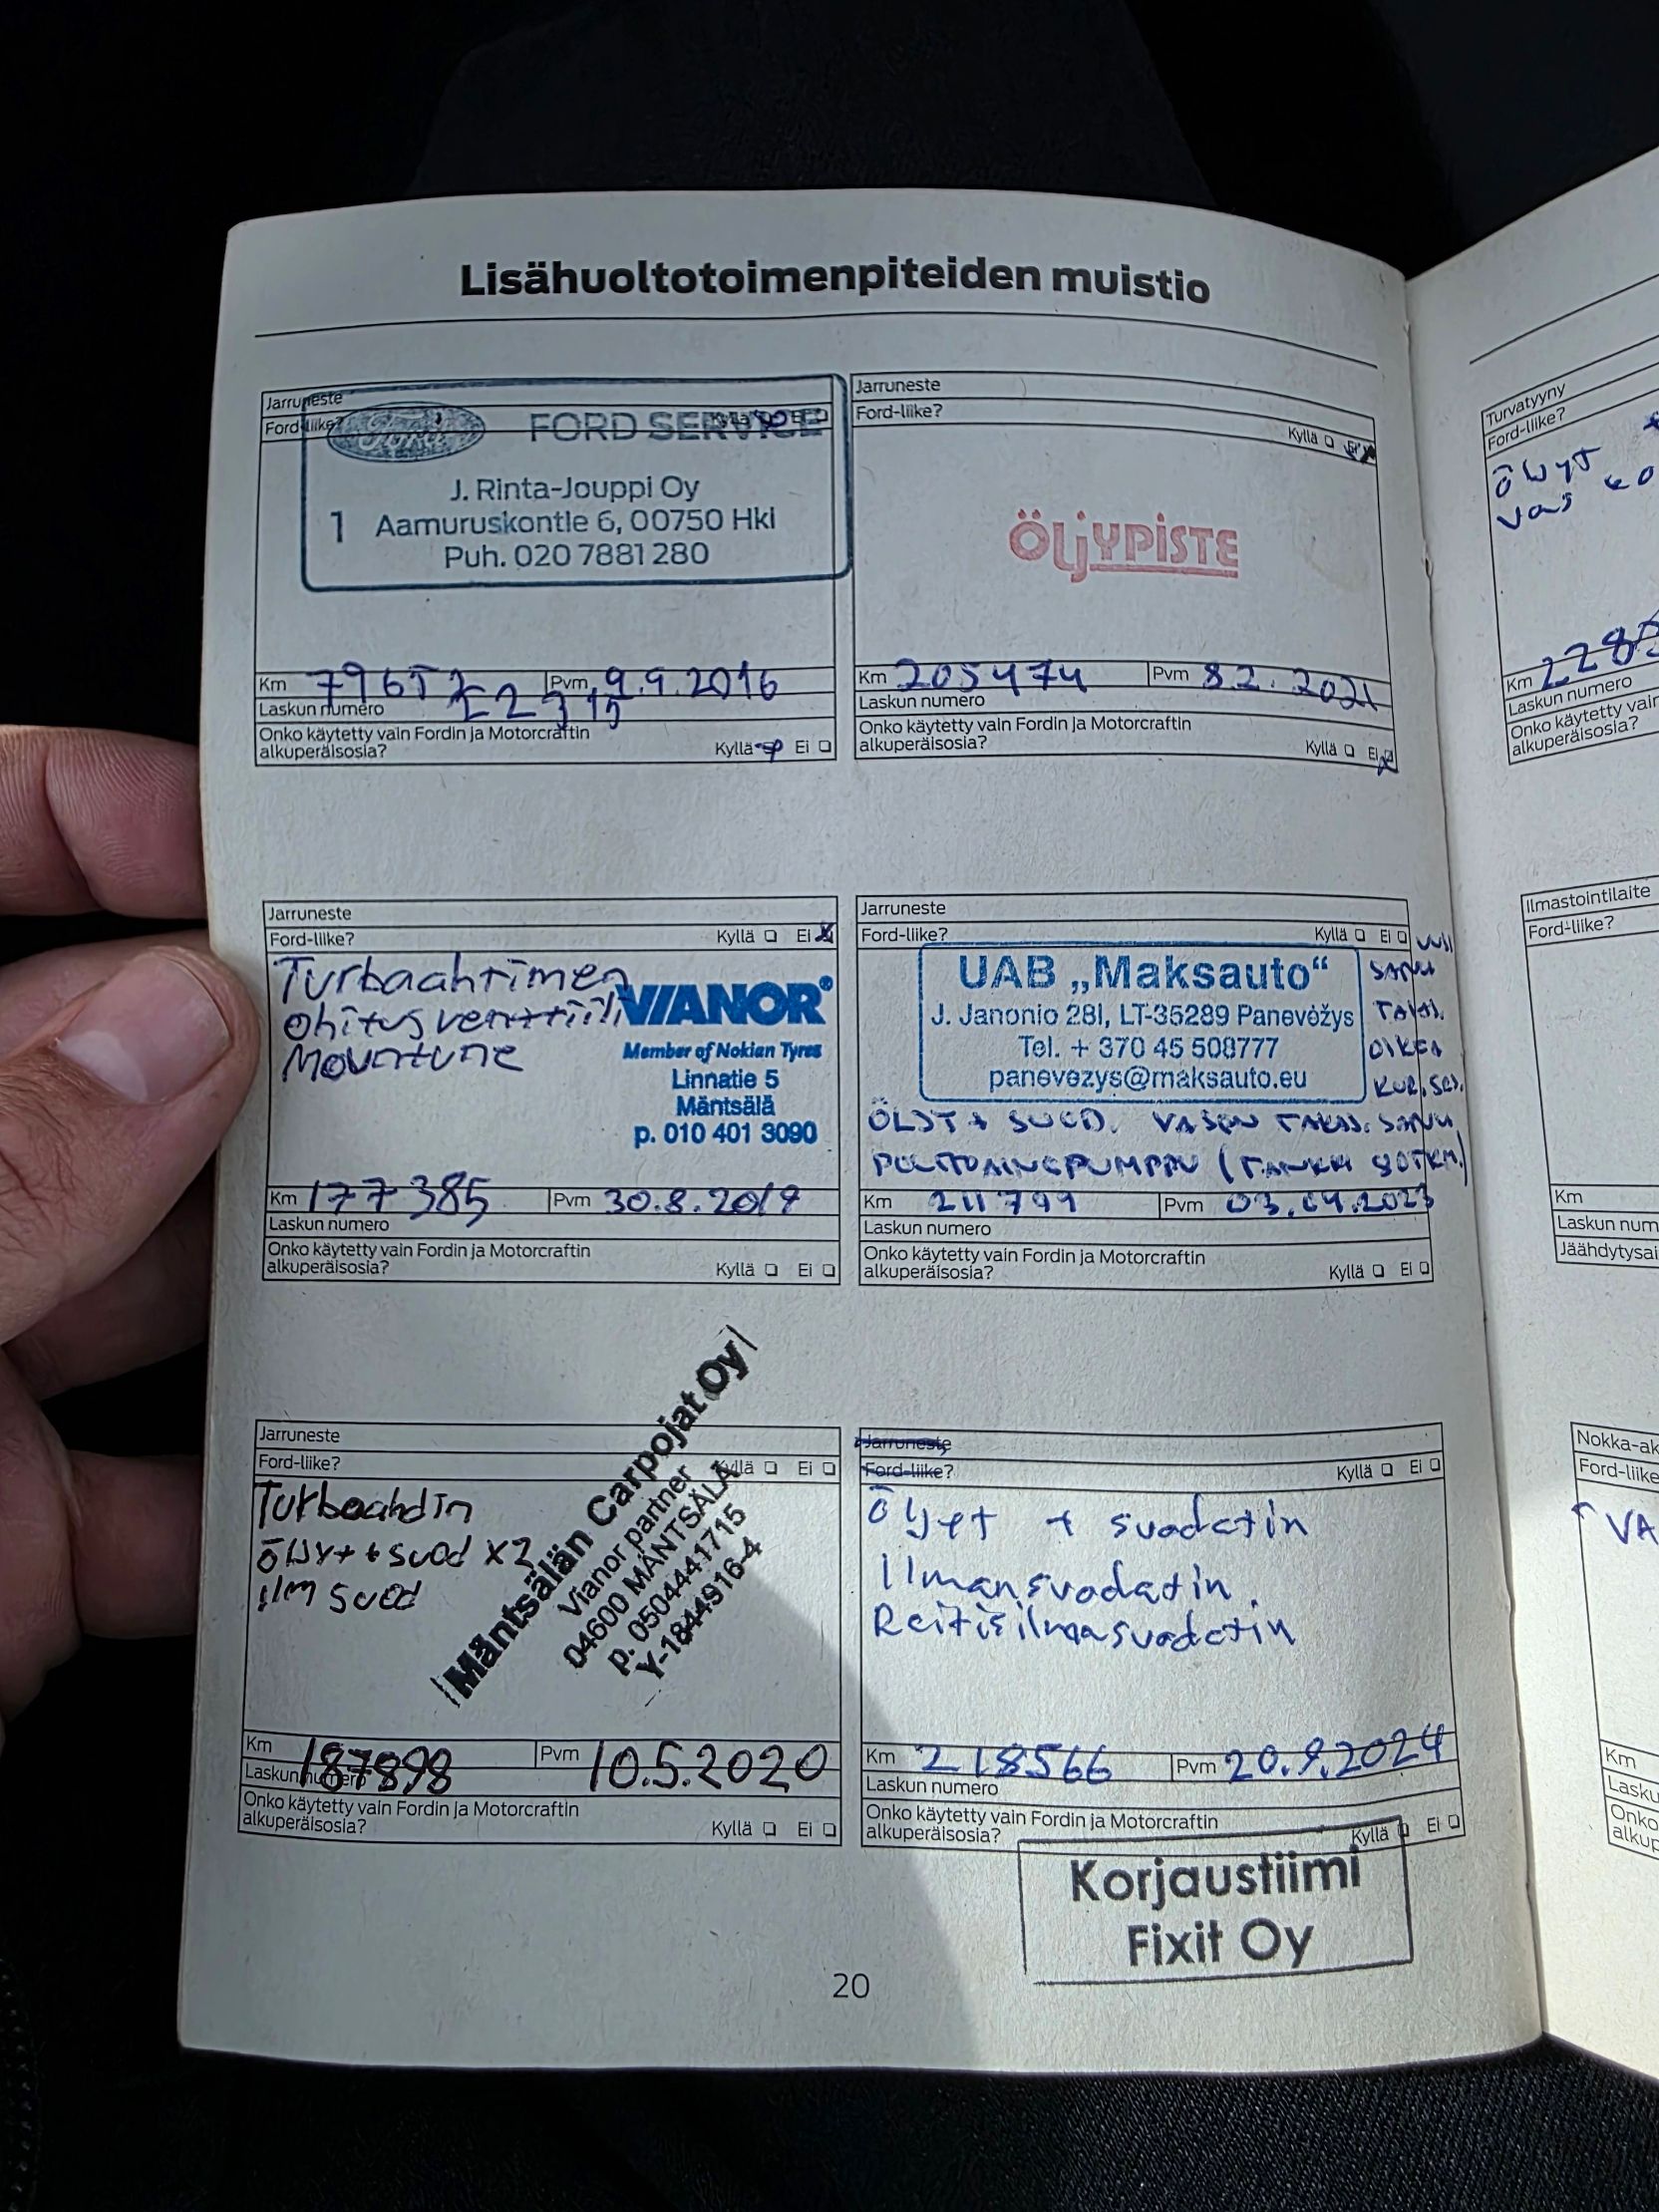 Lisähuoltotoimenpiteiden muistio
Jarruneste
Ford-liike? Kyllä Ei
Ford FORD SERVICE
J. Rinta-Jouppi Oy
1 Aamuruskontie 6, 00750 Hki
Puh. 020 7881 280
Km 79652 Pvm 9.9.2016
Laskun numero
Onko käytetty vain Fordin ja Motorcraftin
alkuperäisosia? Kyllä Ei
Jarruneste
Ford-liike?
Kyllä Ei
ÖLJYPISTE
Km 205474 Pvm 8.2.2021
Laskun numero
Onko käytetty vain Fordin ja Motorcraftin
alkuperäisosia? Kyllä Ei
Jarruneste
Ford-liike? Kyllä Ei
Turboahtimen
ohitusventtiili
Mountune
VIANOR
Member of Nokian Tyres
Linnatie 5
Mäntsälä
p. 010 401 3090
Km 177385 Pvm 30.8.2019
Laskun numero
Onko käytetty vain Fordin ja Motorcraftin
alkuperäisosia? Kyllä Ei
Jarruneste
Ford-liike? Kyllä Ei
UAB „Maksauto“
J. Janonio 28I, LT-35289 Panevėžys
Tel. + 370 45 508777
panevezys@maksauto.eu
OIKEA
ÖLJYT + SUOD. VASEN TAKAJ. SATULA
POLTTOAINEPUMPPU
Km 211799 Pvm 03.04.2023
Laskun numero
Onko käytetty vain Fordin ja Motorcraftin
alkuperäisosia? Kyllä Ei
Jarruneste
Ford-liike? Kyllä Ei
Turboahdin
öljyt + suod x2
ilm suod
Mäntsälän Carpojat Oy
Vianor partner
04600 MÄNTSÄLÄ
p. 0504441715
Y-1844916-4
Km 187898 Pvm 10.5.2020
Laskun numero
Onko käytetty vain Fordin ja Motorcraftin
alkuperäisosia? Kyllä Ei
Jarruneste
Ford-liike? Kyllä Ei
Öljyt + suodatin
Ilmansuodatin
Reitisilmasuodatin
Km 218566 Pvm 20.9.2024
Laskun numero
Onko käytetty vain Fordin ja Motorcraftin
alkuperäisosia? Kyllä Ei
Korjaustiimi
Fixit Oy
20
Turvatyyny
Ford-liike?
öljyt
vas
Km 228
Laskun numero
Onko käytetty vain
alkuperäisosia?
Ilmastointilaite
Ford-liike?
Km
Laskun num
Jäähdytysai
Nokka-ak
Ford-liike
VA
Km
Lasku
Onko
alkup